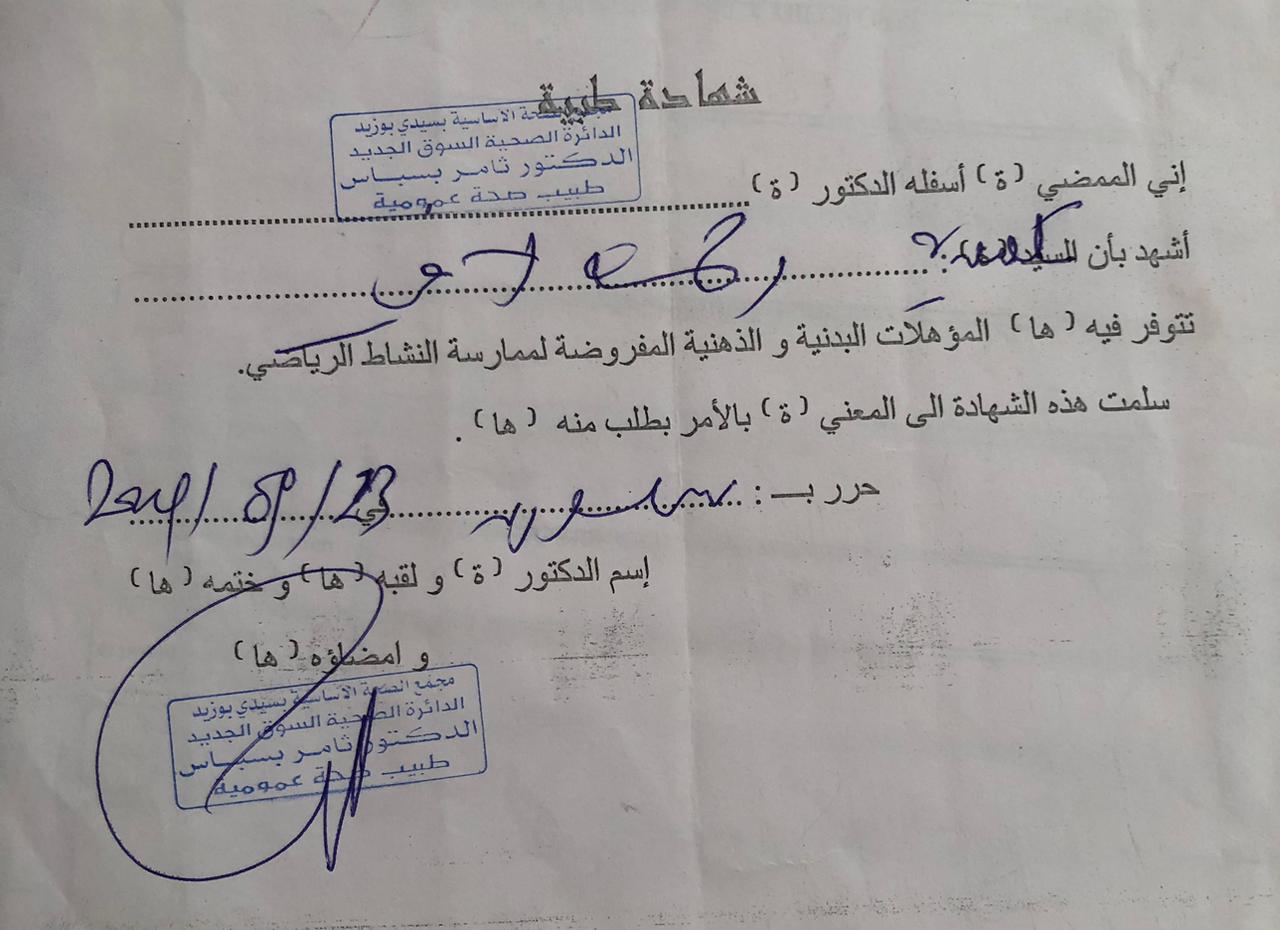 شهادة طبية
مجمع الصحة الأساسية بسيدي بوزيد
الدائرة الصحية السوق الجديد
الدكتور ثامر بسباس
طبيب صحة عمومية
إني الممضي (ة) أسفله الدكتور (ة)
أشهد بأن السيد(ة) :
تتوفر فيه (ها) المؤهلات البدنية و الذهنية المفروضة لممارسة النشاط الرياضي.
سلمت هذه الشهادة الى المعني (ة) بالأمر بطلب منه (ها) .
حرر بـ : في 23/09/2024
إسم الدكتور (ة) و لقبه (ها) و ختمه (ها)
و امضاؤه (ها)
مجمع الصحة الأساسية بسيدي بوزيد
الدائرة الصحية السوق الجديد
الدكتور ثامر بسباس
طبيب صحة عمومية